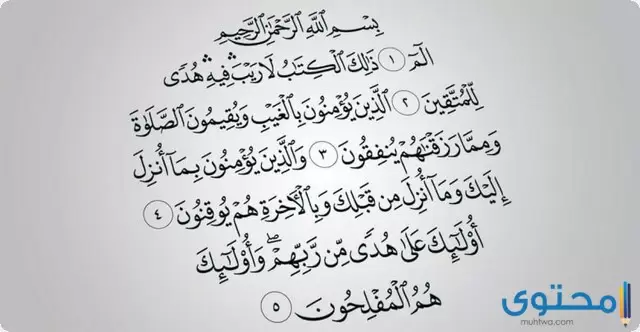 بِسْمِ اللَّهِ الرَّحْمَٰنِ الرَّحِيمِ
الٓمٓ ١ ذَٰلِكَ الْكِتَابُ لَا رَيْبَ ۛ فِيهِ ۛ هُدًى
لِّلْمُتَّقِينَ ٢ الَّذِينَ يُؤْمِنُونَ بِالْغَيْبِ وَيُقِيمُونَ الصَّلَاةَ
وَمِمَّا رَزَقْنَاهُمْ يُنفِقُونَ ٣ وَالَّذِينَ يُؤْمِنُونَ بِمَا أُنزِلَ
إِلَيْكَ وَمَا أُنزِلَ مِن قَبْلِكَ وَبِالْآخِرَةِ هُمْ يُوقِنُونَ ٤
أُولَٰئِكَ عَلَىٰ هُدًى مِّن رَّبِّهِمْ ۖ وَأُولَٰئِكَ
هُمُ الْمُفْلِحُونَ ٥
محتوى
muhtwa.com